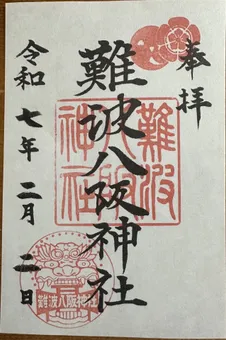 奉拝
難波八阪神社
難波八阪神社
令和七年二月二日
難波八阪神社